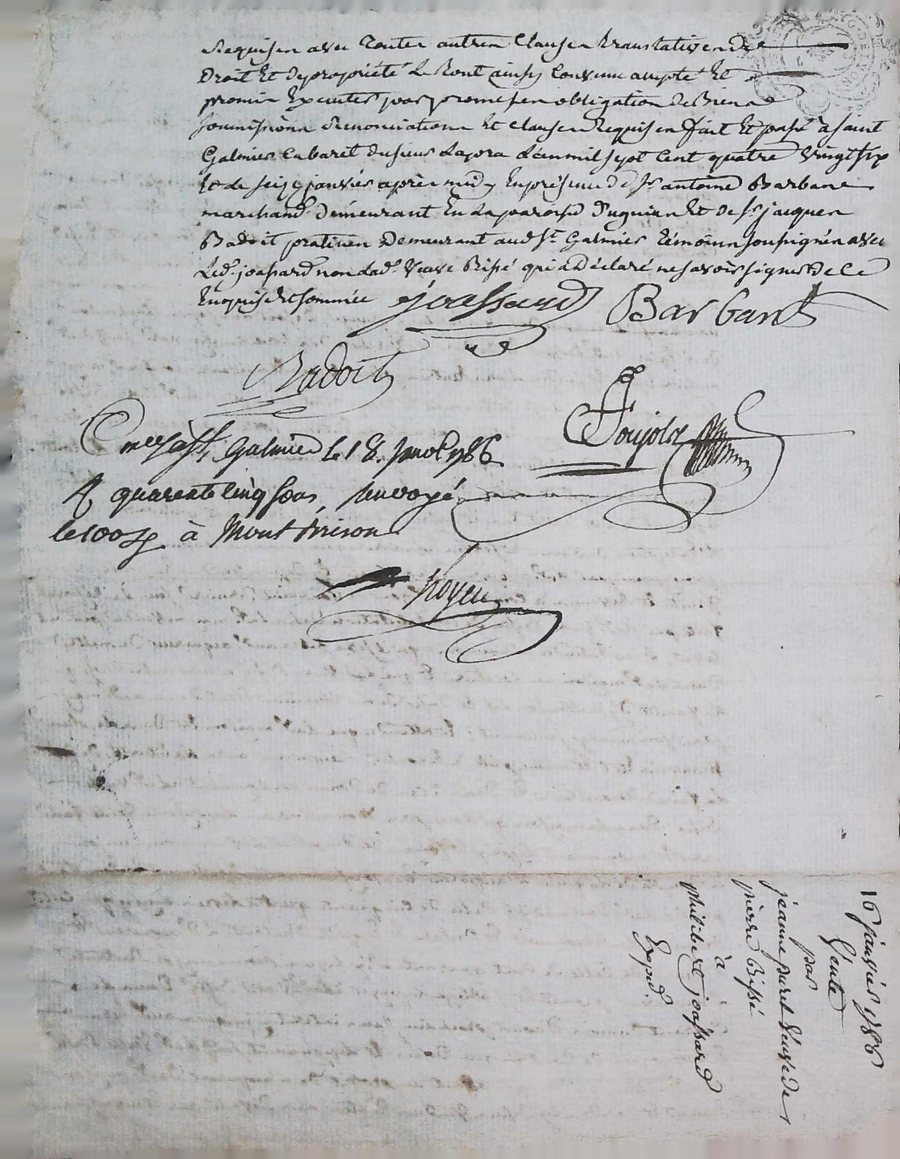 Requisen avec Toutes autren Clausen translativen de
Droit Et de propriété Le Tout ainsy Convenu accepté Et
promis Executer par promessen obligation de Biens
soumissions Renonciations Et Clausen Requisen fait Et passé à Saint
Galmier Cabaret du sieur Lapra L'an mil sept Cent quatre vingt six
Et le seize janvier après midy En présence de Sr antoine Barban
marchand demeurant En la paroisse Et de Sr jacques
Badoit praticien demeurant aud. St. Galmier témoins soussignés avec
Led. joassard non Lad. veuve Bissé qui a déclaré ne savoir signer de ce
Enquise Et sommée joassard Barban
Badoit
Poujolz
à St Galmier le 18. Janv. 1786
R quarente cinq sous renvoyé
le 100e à Mont brison
Royeu
16 janvier 1786
Vente
par
jeanne puret veuve de
pierre Bissé
à
philibert joassard
Expéd.